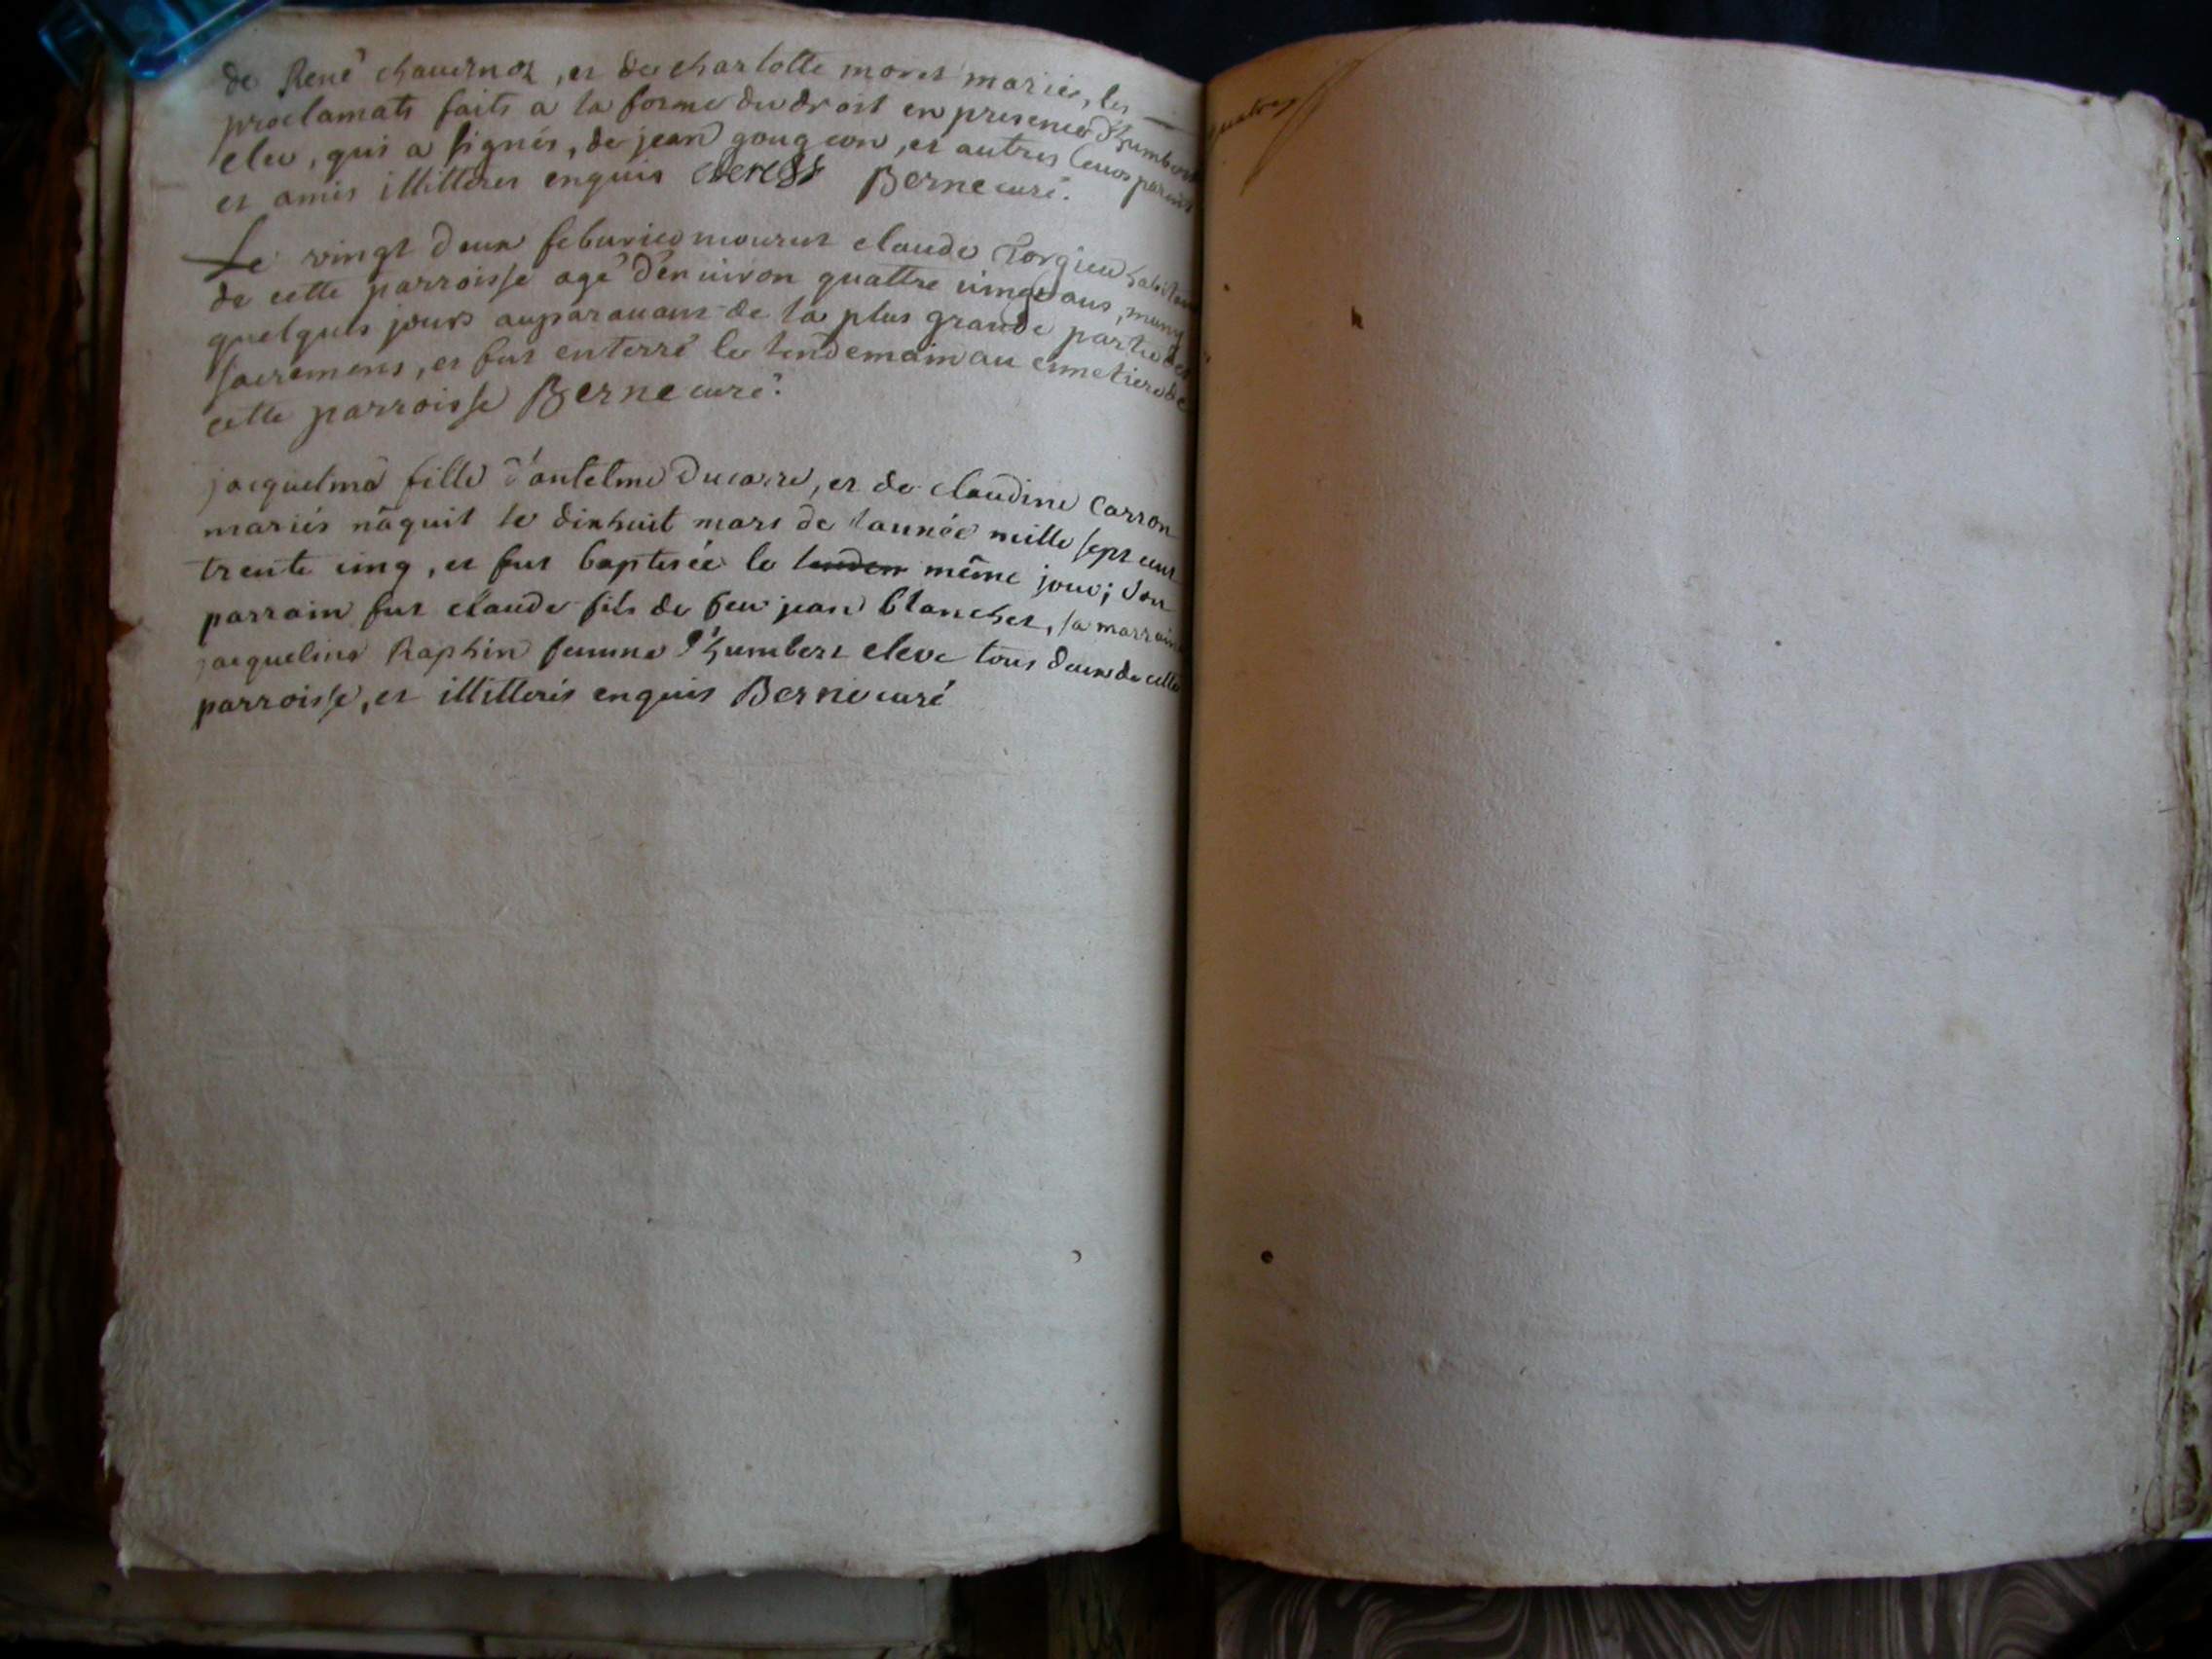 de René chavernoz, et de charlotte moret mariés, les
proclamats faits a la forme du droit en presence d'humbert
eleu, qui a signés, de jean gougeon, et autres leurs parents
et amis illitteres enquis Berne curé.
Le vingt deux feburier mourut claude habitant
de cette parroisse agé d'environ quattre vingt ans, muny
quelques jours auparauant de la plus grande partie des
sacremens, et fut enterré le lendemain au cimetiere de
cette parroisse Berne curé.
jacqueline fille d'antelme Ducarre, et de claudine Carron
mariés nâquit le dixhuit mars de l'année mille sept cent
trente cinq, et fut baptisée le lendem même jour; son
parrain fut claude fils de feu jean blanchet, sa marraine
jacqueline Raphin femme d'humbert eleve tous deux de cette
parroisse, et illitterés enquis Berne curé